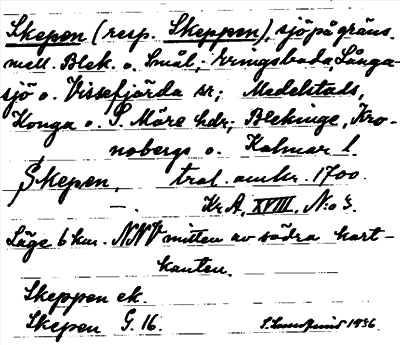 Skepen (resp. Skeppen), sjö på gräns.
mell. Blek. o. Smål.; Eringsboda, Långa-
sjö o. Vissefjärda sr; Medelstads,
Konga o. S. Möre hdr; Blekinge, Kro-
nobergs o. Kalmar l.
Skepen, trol. omkr. 1700.
Kr. A. XVIII, N:o 3.
Läge 6 km. NNV mitten av södra kart-
kanten.
Skeppen ek.
Skepen G. 16.
1936